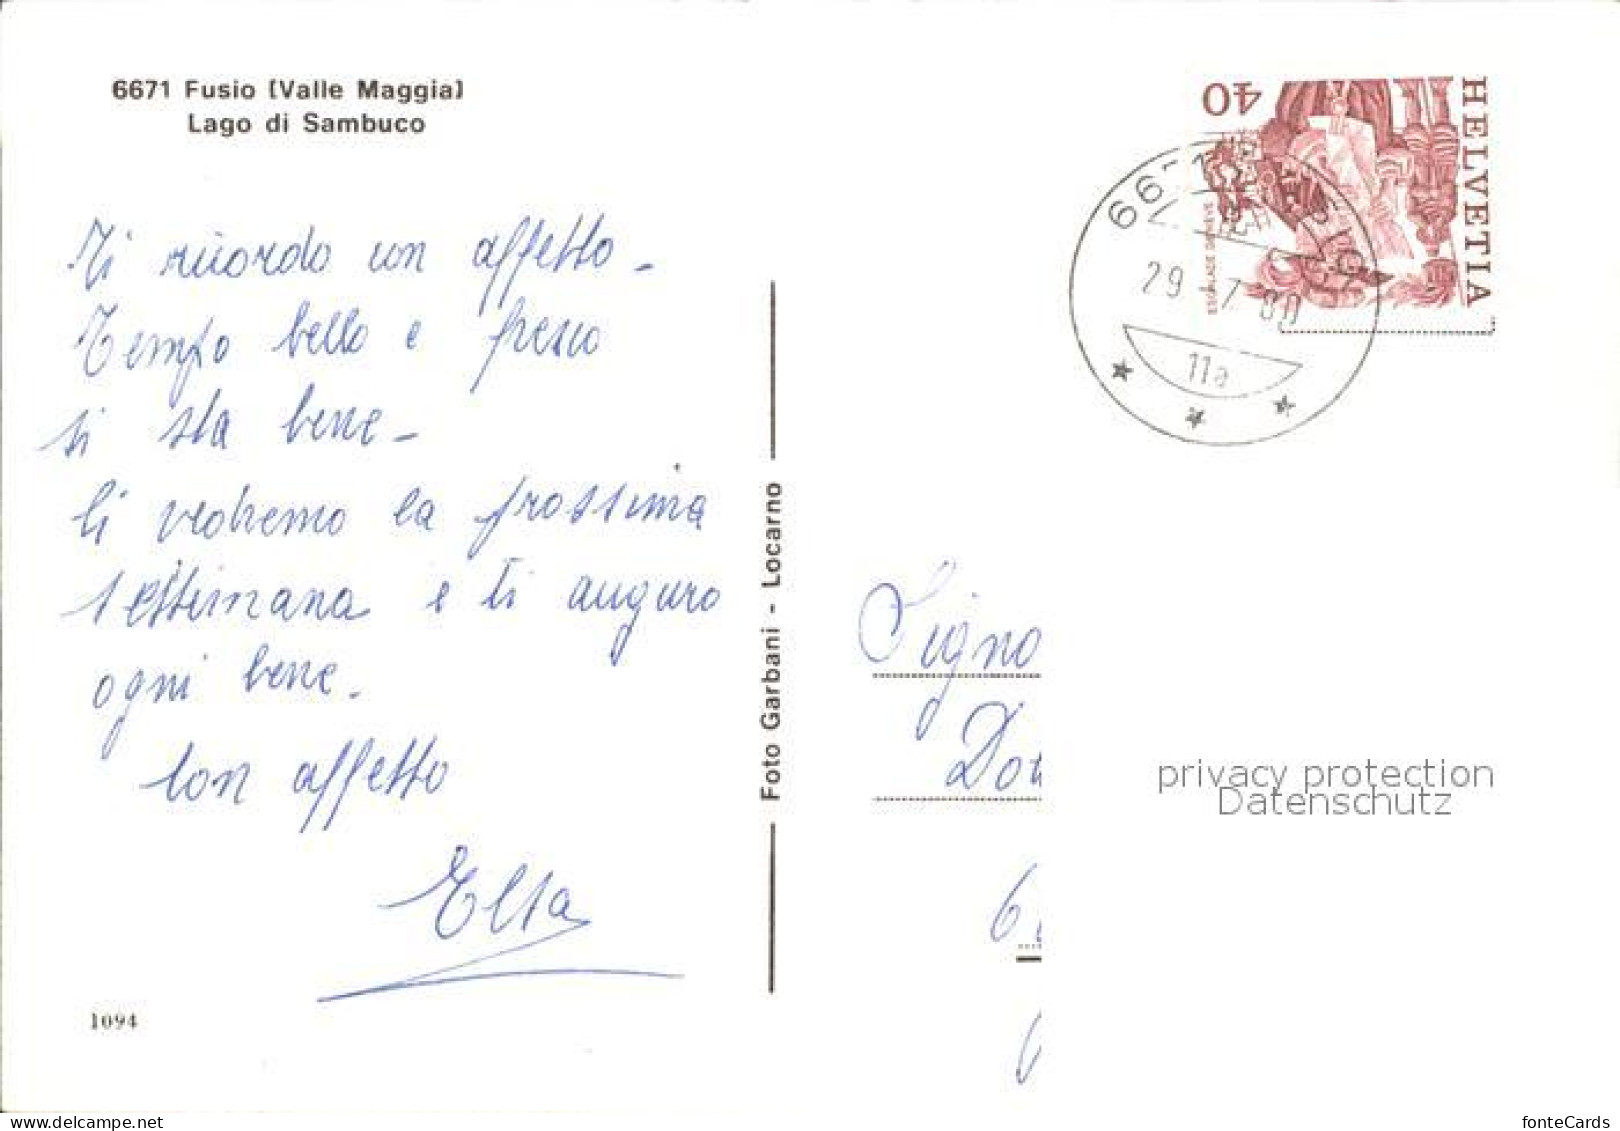 6671 Fusio (Valle Maggia)
Lago di Sambuco
Ti ricordo con affetto -
Tempo bello e fresco
si sta bene -
Ci vedremo la prossima
settimana e ti auguro
ogni bene.
Con affetto
Elsa
1094
Foto Garbani - Locarno
HELVETIA
40
ESCALADE GENÈVE
6671
29.-7.80
11a
Signo
Do
6
privacy protection
Datenschutz
delcampe.net
fonteCards